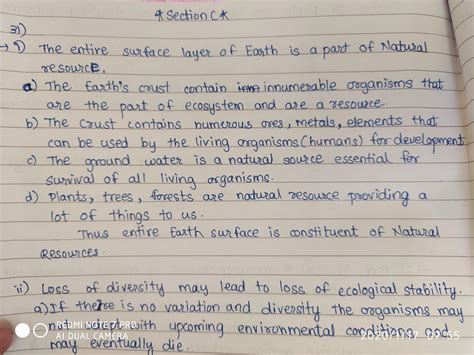 * Section C *
31)
→ i) The entire surface layer of Earth is a part of Natural
resource.
a) The Earth's crust contain innumerable organisms that
are the part of ecosystem and are a resource
b) The crust contains numerous ores, metals, elements that
can be used by the living organisms (humans) for development
c) The ground water is a natural source essential for
survival of all living organisms.
d) Plants, trees, forests are natural resource providing a
lot of things to us.
Thus entire Earth surface is constituent of Natural
Resources.
ii) Loss of diversity may lead to loss of ecological stability.
a) If there is no variation and diversity the organisms may
not adapt with upcoming environmental conditions and
may eventually die.
REDMI NOTE 7 PRO
AI DUAL CAMERA